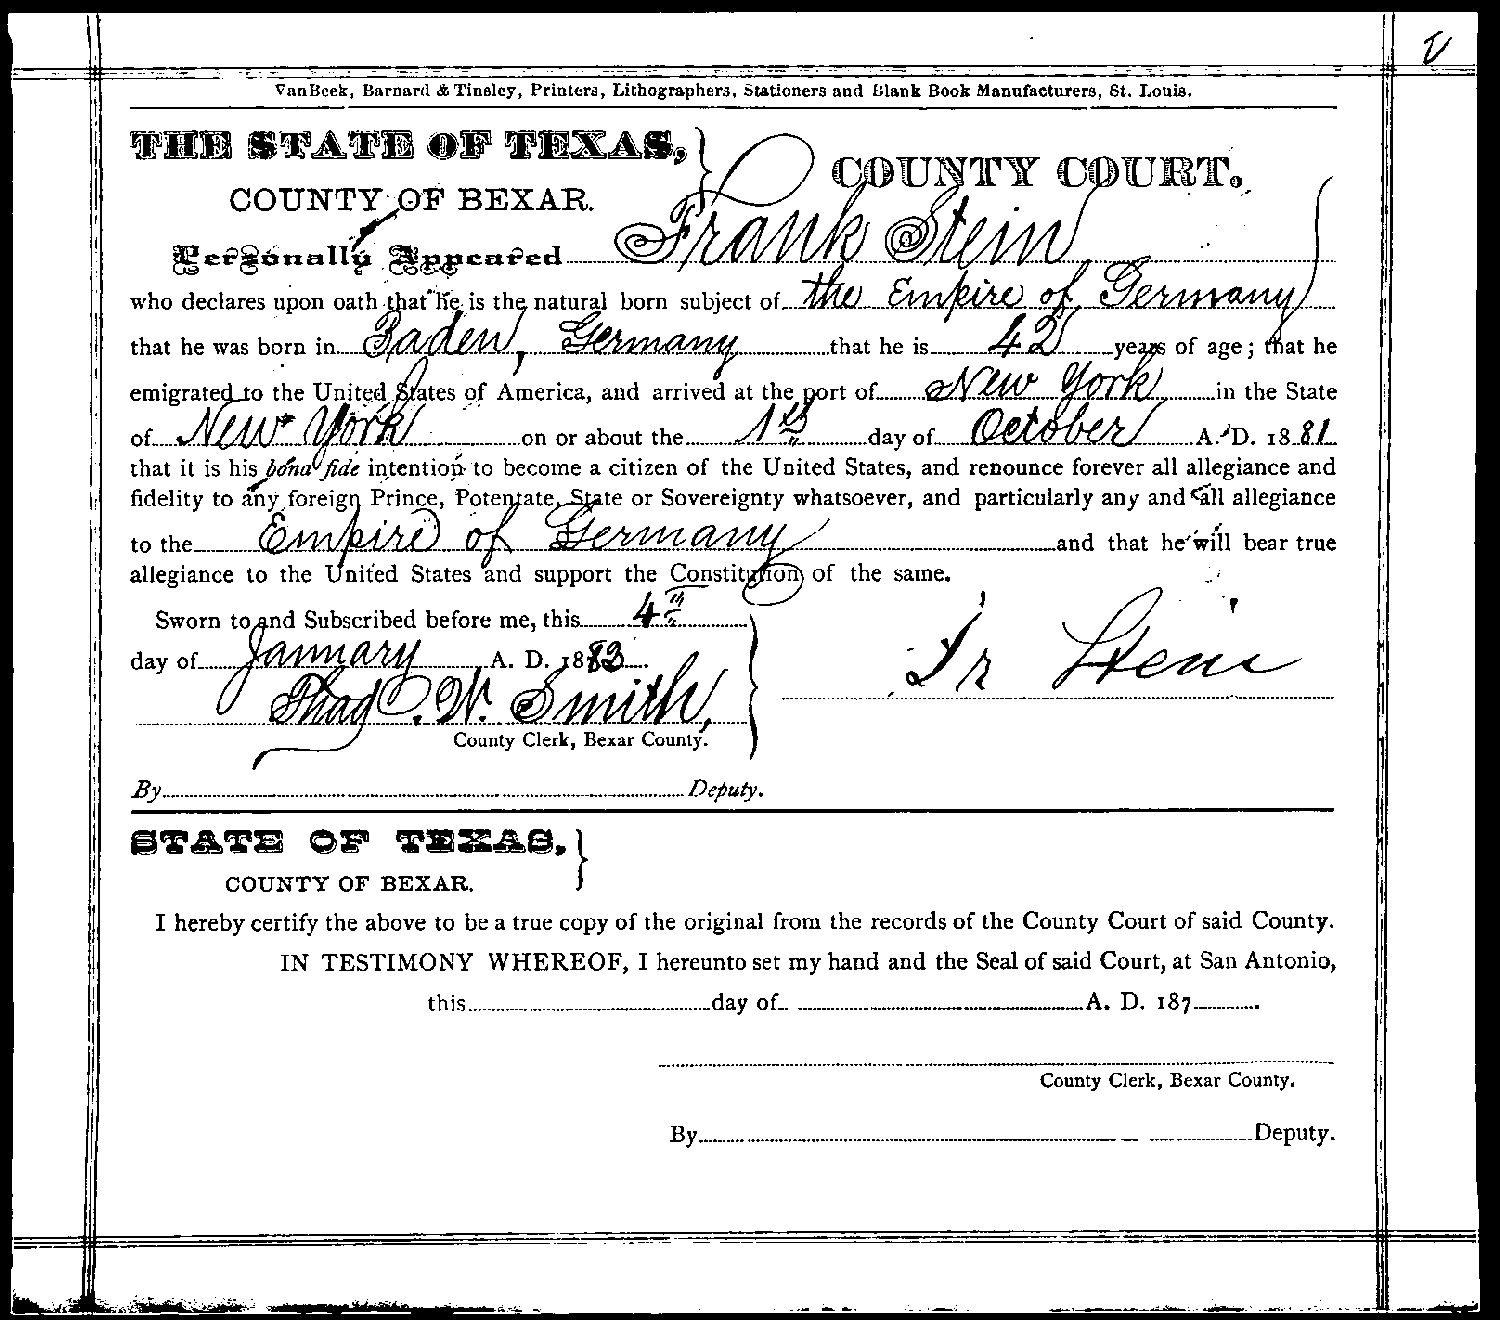 VanBeek, Barnard & Tinsley, Printers, Lithographers, Stationers and Blank Book Manufacturers, St. Louis.
THE STATE OF TEXAS, COUNTY COURT.
COUNTY OF BEXAR.
Personally Appeared Frank Stein
who declares upon oath that he is the natural born subject of the Empire of Germany
that he was born in Baden, Germany that he is 42 years of age; that he
emigrated to the United States of America, and arrived at the port of New York in the State
of New York on or about the 1st day of October A. D. 1881
that it is his bona fide intention to become a citizen of the United States, and renounce forever all allegiance and
fidelity to any foreign Prince, Potentate, State or Sovereignty whatsoever, and particularly any and all allegiance
to the Empire of Germany and that he will bear true
allegiance to the United States and support the Constitution of the same.
Sworn to and Subscribed before me, this 4th
day of January A. D. 1883
Fr Stein
Thad. W. Smith,
County Clerk, Bexar County.
By Deputy.
STATE OF TEXAS,
COUNTY OF BEXAR.
I hereby certify the above to be a true copy of the original from the records of the County Court of said County.
IN TESTIMONY WHEREOF, I hereunto set my hand and the Seal of said Court, at San Antonio,
this day of A. D. 187
County Clerk, Bexar County.
By Deputy.